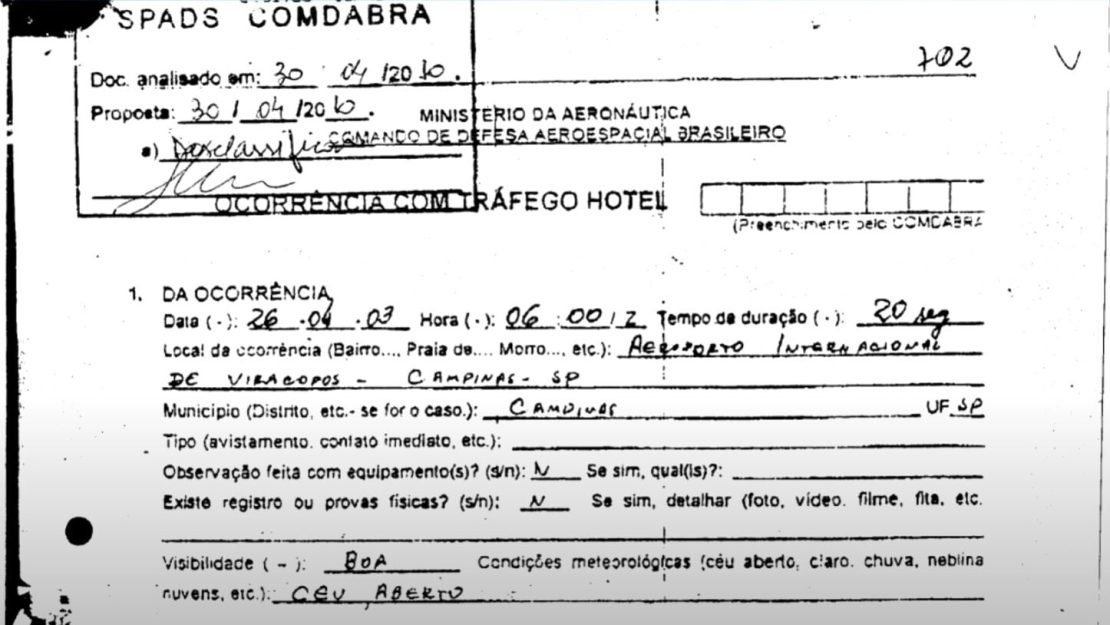 SPADS COMDABRA
702
Doc. analisado em: 30 04 /2010.
Proposta: 30 / 04 /2010.
MINISTÉRIO DA AERONÁUTICA
a) Desclassificar
COMANDO DE DEFESA AEROESPACIAL BRASILEIRO
OCORRÊNCIA COM TRÁFEGO HOTEL
(Preenchimento pelo COMDABRA
1. DA OCORRÊNCIA
Data ( - ): 26 . 04 . 03 Hora ( - ): 06 : 00 / Z Tempo de duração ( - ): 20 seg
Local da ocorrência (Bairro..., Praia de.... Morro..., etc.): AEROPORTO INTERNACIONAL
DE VIRACOPOS - CAMPINAS - SP
Município (Distrito, etc.- se for o caso.): CAMPINAS UF SP
Tipo (avistamento. contato imediato, etc.):
Observação feita com equipamento(s)? (s/n): N Se sim, qual(is)?:
Existe registro ou provas físicas? (s/n): N Se sim, detalhar (foto, vídeo. filme, fita, etc.
Visibilidade ( - ): BOA Condições meteorológicas (céu aberto, claro. chuva, neblina
nuvens, etc.): CÉU ABERTO